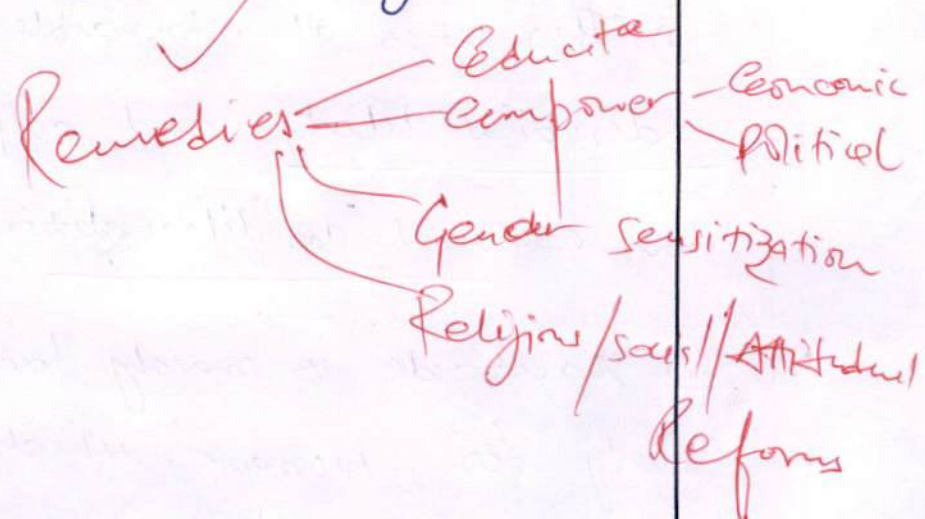 Educate
Empower - Economic
Political
Remedies
Gender sensitization
Religious/social/Attitudinal
Reforms